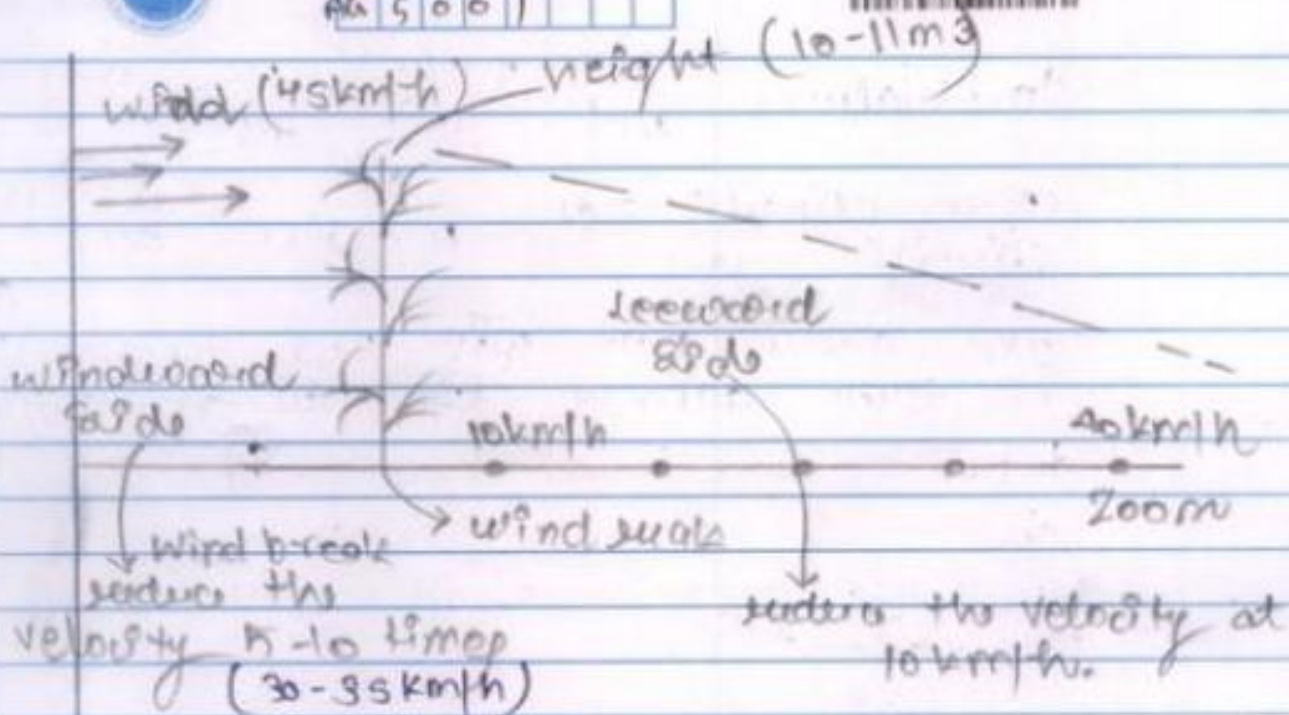 AG 5 0 0 1
height (10-11m3)
wind (45km/h)
Leeward
side
windward
side
10km/h
40km/h
200m
wind
Wind break
reduce the
velocity 5-10 times
(30-35km/h)
reduce the velocity at
10km/h.